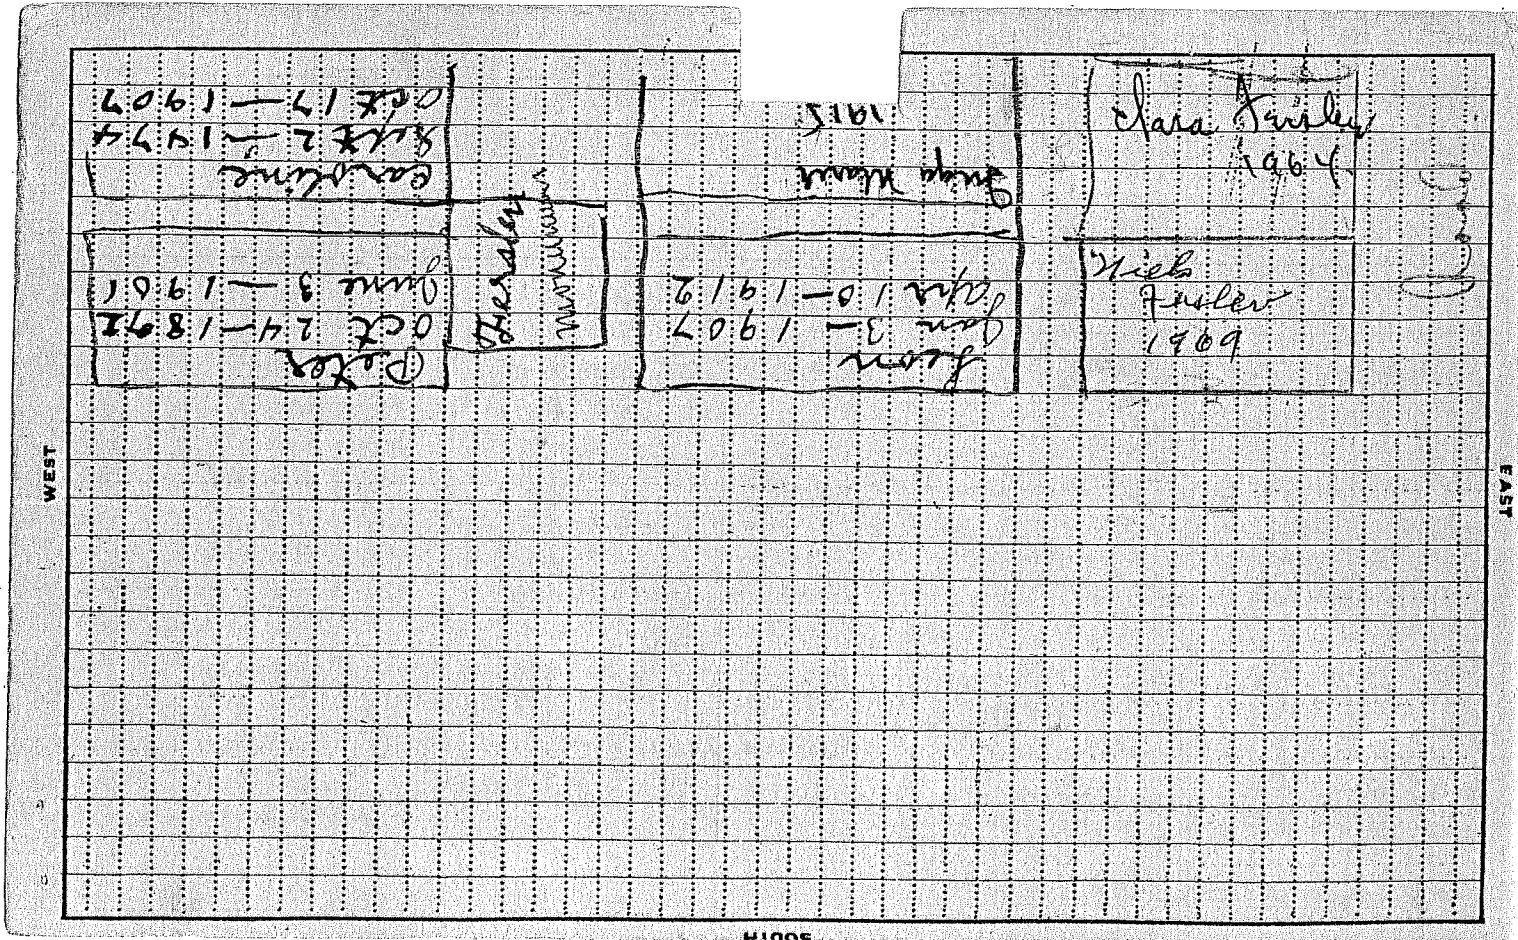 Caroline
Sept 2 — 1474
Oct 17 — 1907
Peter
Oct 24 — 1892
June 3 — 1901
Monument
1915
Leon
Jan 3 — 1907
Apr 10 — 1912
Clara Fersley
1964
Nick
Fersler
1969
WEST
EAST
SOUTH